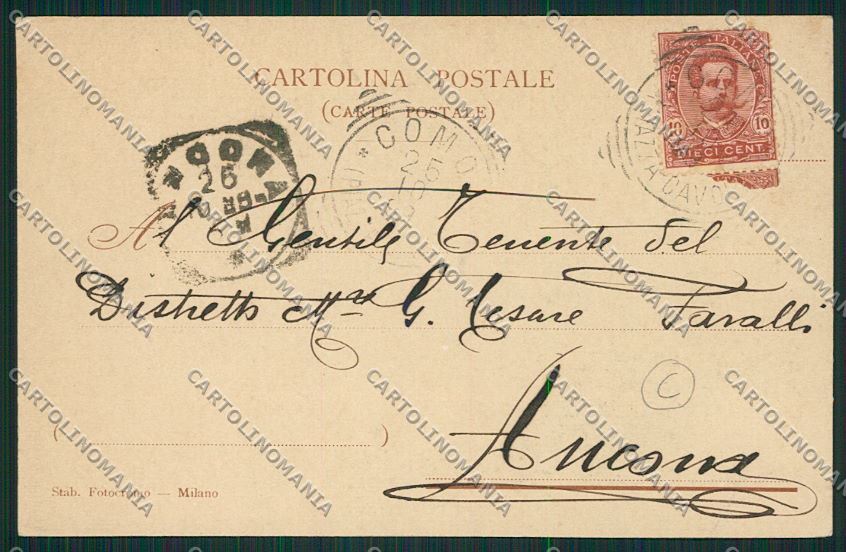 CARTOLINA POSTALE
(CARTE POSTALE)
POSTE ITALIANE
10 10
DIECI CENT.
COMO
25
10
ANCONA
26
Al Gentile Tenente del
Distretto Mre G. Cesare Faralli
Ancona
C
Stab. Fotocromo — Milano
CARTOLINOMANIA